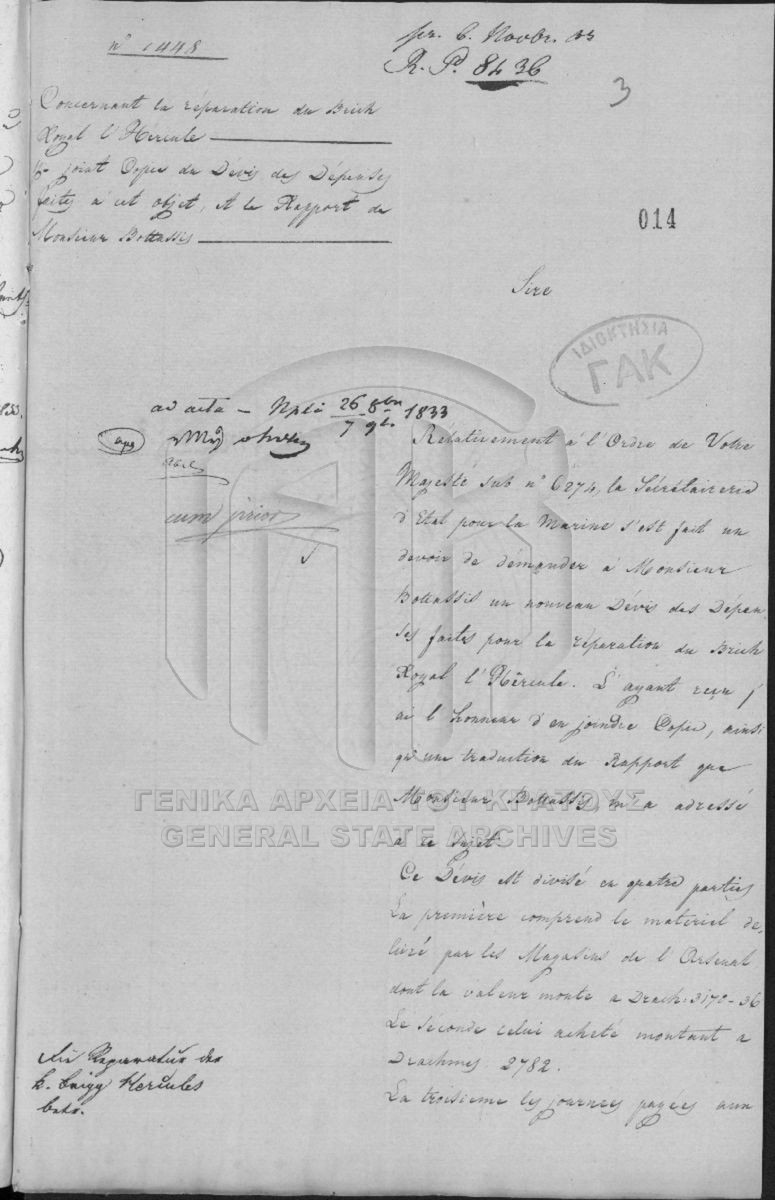 n° 1448
pr. 6. Novbr. 33
R. P. 8436
3
Concernant la réparation du Brick
Royal l'Hercule
ci-joint Copie du Dévis des Dépenses
faites à cet objet, et le Rapport de
Monsieur Bottassis
014
Sire
ΙΔΙΟΚΤΗΣΙΑ
ΓΑΚ
ad acta – Nplia 26 8bre 1833
7 9br
Relativement à l'Ordre de Votre
Majesté sub n° 6274, la Sécrétairerie
d'Etat pour la Marine s'est fait un
devoir de démander à Monsieur
Bottassis un nouveau Dévis des Dépen
ses faites pour la réparation du Brick
Royal l'Hércule. L'ayant reçu j'
ai l'honneur d'en joindre Copie, ainsi
qu'une traduction du Rapport que
Monsieur Bottassis m'a adressé
a ce sujet
ΓΕΝΙΚΑ ΑΡΧΕΙΑ ΤΟΥ ΚΡΑΤΟΥΣ
GENERAL STATE ARCHIVES
Ce Dévis est divisé en quatre parties
La première comprend le matériel dé-
livré par les Magasins de l'Arsenal
dont la valeur monte a Drach: 3172-36
Le séconde celui acheté montant a
Drachmes 2782.
La troisieme les journées payées aux
die Reparatur des
k. Brigg Hercules
betr.
cum prior